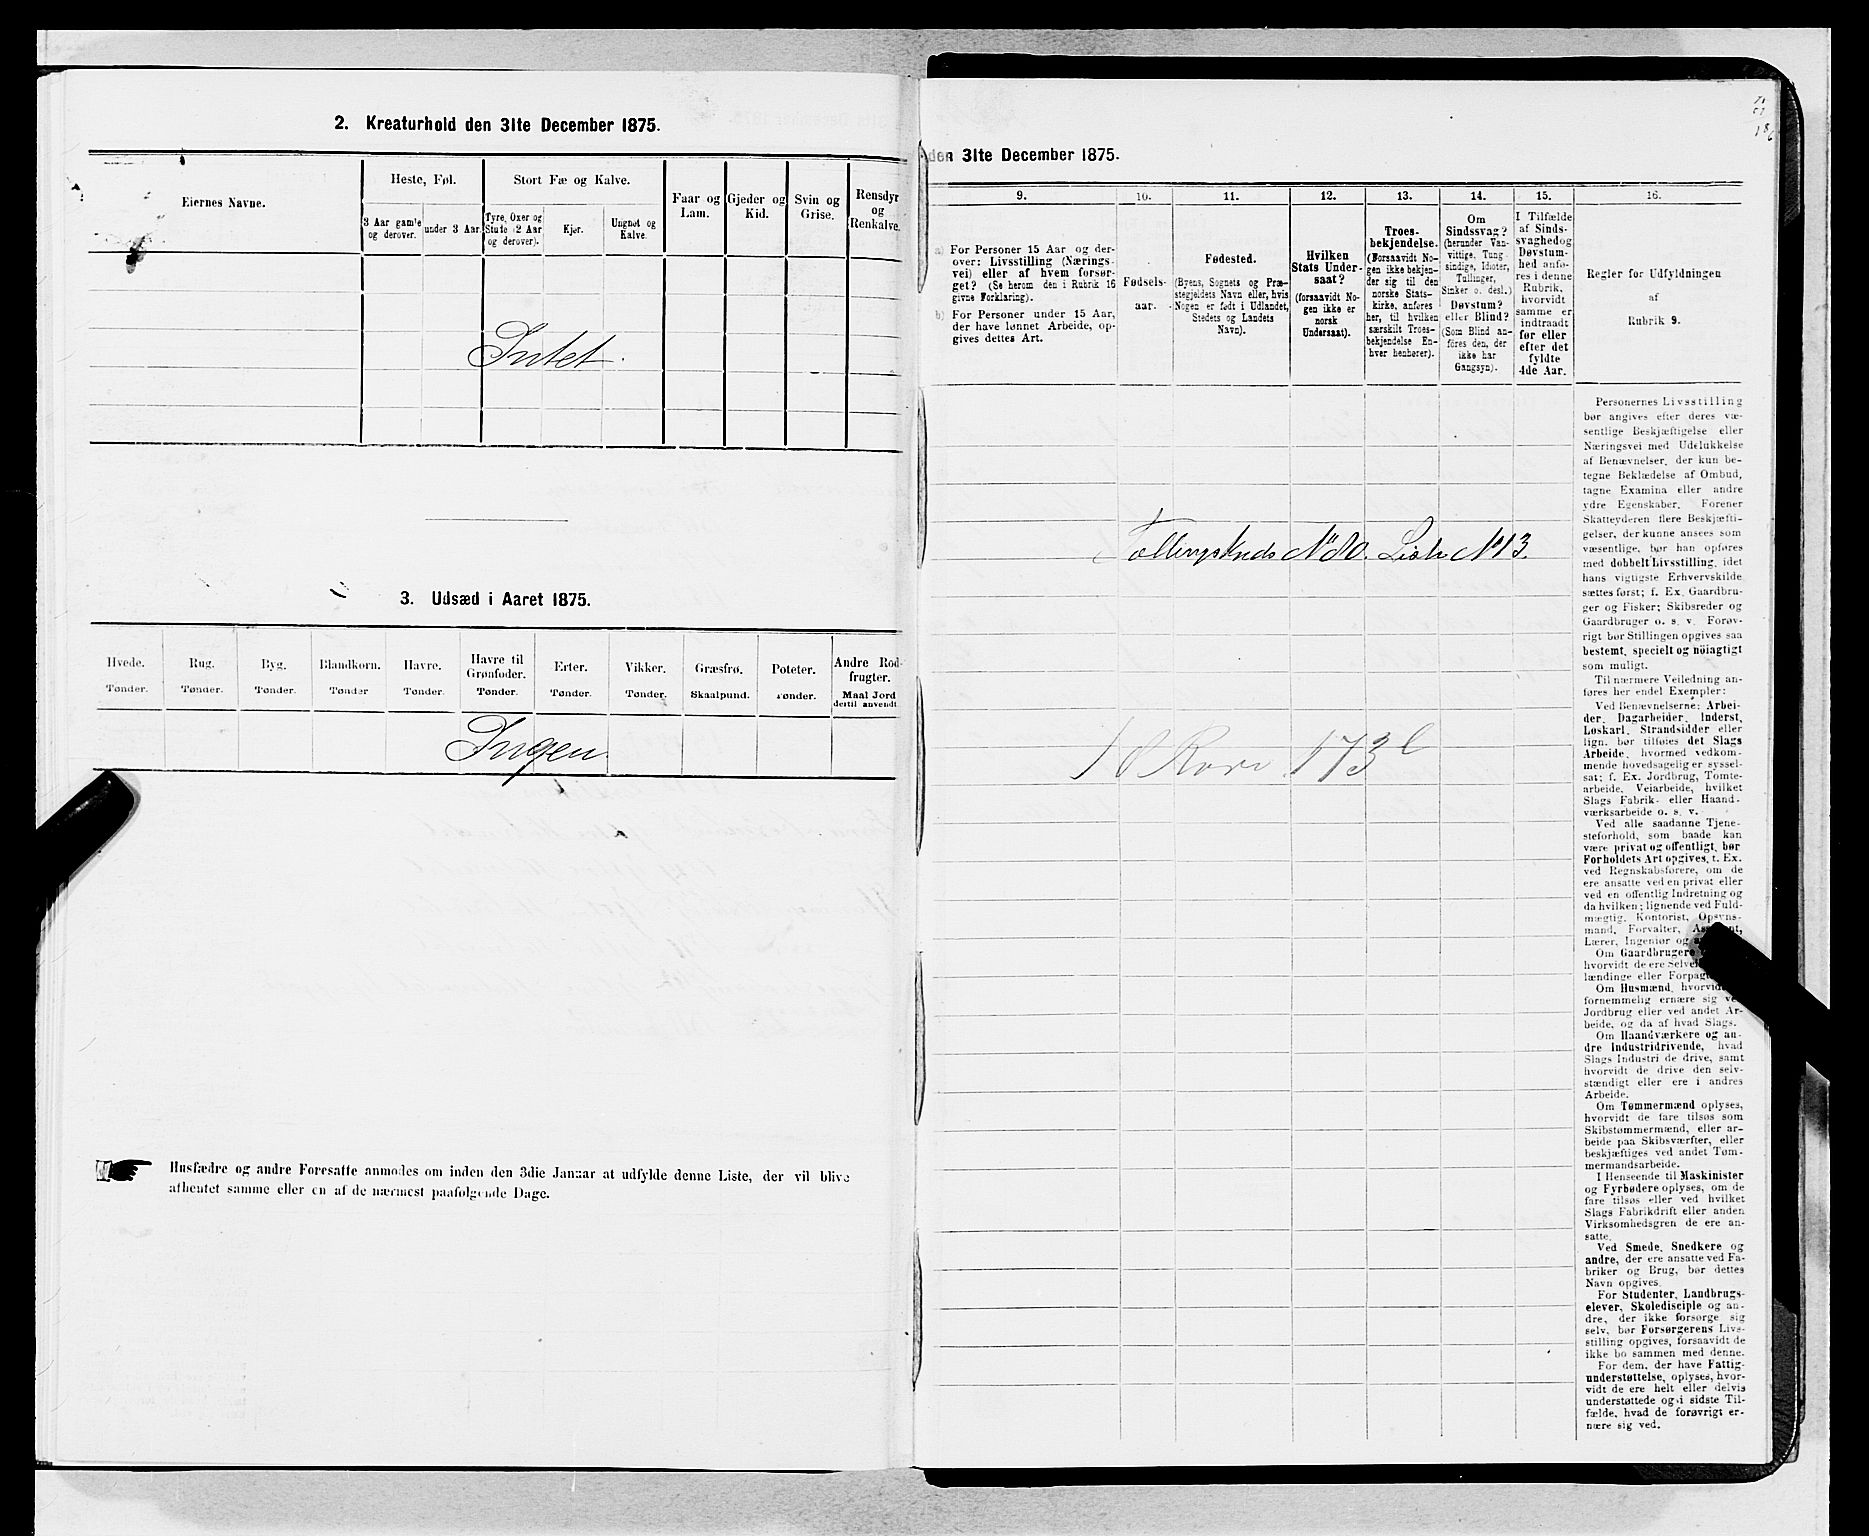 2. Kreaturhold den 31te December 1875.
Eiernes Navne.
Heste, Føl.
3 Aar gamle og derover.
under 3 Aar.
Stort Fæ og Kalve.
Tyre, Oxer og Stute (2 Aar og derover).
Kjør.
Ungnøt og Kalve.
Faar og Lam.
Gjeder og Kid.
Svin og Grise.
Rensdyr og Renkalve.
Intet.
3. Udsæd i Aaret 1875.
Hvede. Rug. Byg. Blandkorn. Havre. Havre til Grønfoder. Erter. Vikker. Græsfrø. Poteter. Andre Rod-frugter.
Tønder. Tønder. Tønder. Tønder Tønder. Tønder. Tønder. Tønder. Skaalpund. Tønder. Maal Jord dertil anvendt.
Ingen.
Husfædre og andre Foresatte anmodes om inden den 3die Januar at udfylde denne Liste, der vil blive
afhentet samme eller en af de nærmest paafølgende Dage.
den 31te December 1875.
9. 10. 11. 12. 13. 14. 15. 16.
a) For Personer 15 Aar og der-
over: Livsstilling (Nærings-
vei) eller af hvem forsør-
get? (Se herom den i Rubrik 16
givne Forklaring).
b) For Personer under 15 Aar,
der have lønnet Arbeide, op-
gives dettes Art.
Fødsels-
aar.
Fødested.
(Byens, Sognets og Præ-
stegjeldets Navn eller, hvis
Nogen er født i Udlandet,
Stedets og Landets
Navn).
Hvilken
Stats Under-
saat?
(forsaavidt No-
gen ikke er
norsk
Undersaat).
Troes-
bekjendelse.
(Forsaavidt No-
gen ikke bekjen-
der sig til den
norske Stats-
kirke, anføres
her, til hvilken
særskilt Troes-
bekjendelse En-
hver henhører).
Om
Sindssvag?
(herunder Van-
vittige, Tung-
sindige, Idioter,
Tullinger,
Sinker o. desl.)
Døvstum?
eller Blind?
(Som Blind an-
føres den, der
ikke har
Gangsyn).
I Tilfælde
af Sinds-
svaghed og
Døvstum-
hed anfø-
res i denne
Rubrik,
hvorvidt
samme er
indtraadt
før eller
efter det
fyldte
4de Aar.
Regler for Udfyldningen
af
Rubrik 9.
Personernes Livsstilling
bør angives efter deres væ-
sentlige Beskjæftigelse eller
Næringsvei med Udelukkelse
af Benævnelser, der kun be-
tegne Beklædelse af Ombud,
tagne Examina eller andre
ydre Egenskaber. Forener
Skatteyderen flere Beskjæfti-
gelser, der kunne ansees som
væsentlige, bør han opføres
med dobbelt Livsstilling, idet
hans vigtigste Erhvervskilde
sættes først; f. Ex. Gaardbru-
ger og Fisker; Skibsreder og
Gaardbruger o. s. v. Forøv-
rigt bør Stillingen opgives saa
bestemt, specielt og nöiagtigt
som muligt.
Til nærmere Veiledning an-
føres her endel Exempler:
Ved Benævnelserne: Arbei-
der, Dagarbeider, Inderst,
Løskarl, Strandsidder eller
lign. bør tilføies det Slags
Arbeide, hvormed vedkom-
mende hovedsagelig er syssel-
sat; f. Ex. Jordbrug, Tomte-
arbeide, Veiarbeide, hvilket
Slags Fabrik- eller Haand-
værksarbeide o. s. v.
Ved alle saadanne Tjene-
steforhold, som baade kan
være privat og offentligt, bør
Forholdets Art opgives, t. Ex.
ved Regnskabsførere, om de
ere ansatte ved en privat eller
ved en offentlig Indretning og
da hvilken; lignende ved Fuld-
mægtig, Kontorist, Opsyns-
mand, Forvalter,
Lærer, Ingeniør og
Om Gaardbrugere
hvorvidt de ere
lændinge eller
Om Husmænd,
fornemmelig ernære sig
Jordbrug eller ved andet Ar-
beide, og da af hvad Slags.
Om Haandværkere og an-
dre Industridrivende, hvad
Slags Industri de drive, samt
hvorvidt de drive den selv-
stændigt eller ere i andres
Arbeide.
Om Tømmermænd oplyses,
hvorvidt de fare tilsøs som
Skibstømmermænd, eller ar-
beide paa Skibsværfter, eller
beskjæftiges ved andet Tøm-
mermandsarbeide.
I Henseende til Maskinister
og Fyrbødere oplyses, om de
fare tilsøs eller ved hvilket
Slags Fabrikdrift eller anden
Virksomhedsgren de ere an-
satte.
Ved Smede, Snedkere og
andre, der ere ansatte ved Fa-
briker og Brug, bør dettes
Navn opgives.
For Studenter, Landbrugs-
elever, Skoledisciple og an-
dre, der ikke forsørge sig
selv, bør Forsørgerens Livs-
stilling opgives, forsaavidt de
ikke bo sammen med denne.
For dem, der have Fattig-
understøttelse, oplyses, hvor-
vidt de ere helt eller delvis
understøttede og i sidste Til-
fælde, hvad de forøvrigt er-
nære sig ved.
Tællingskreds No 10. Liste No 13